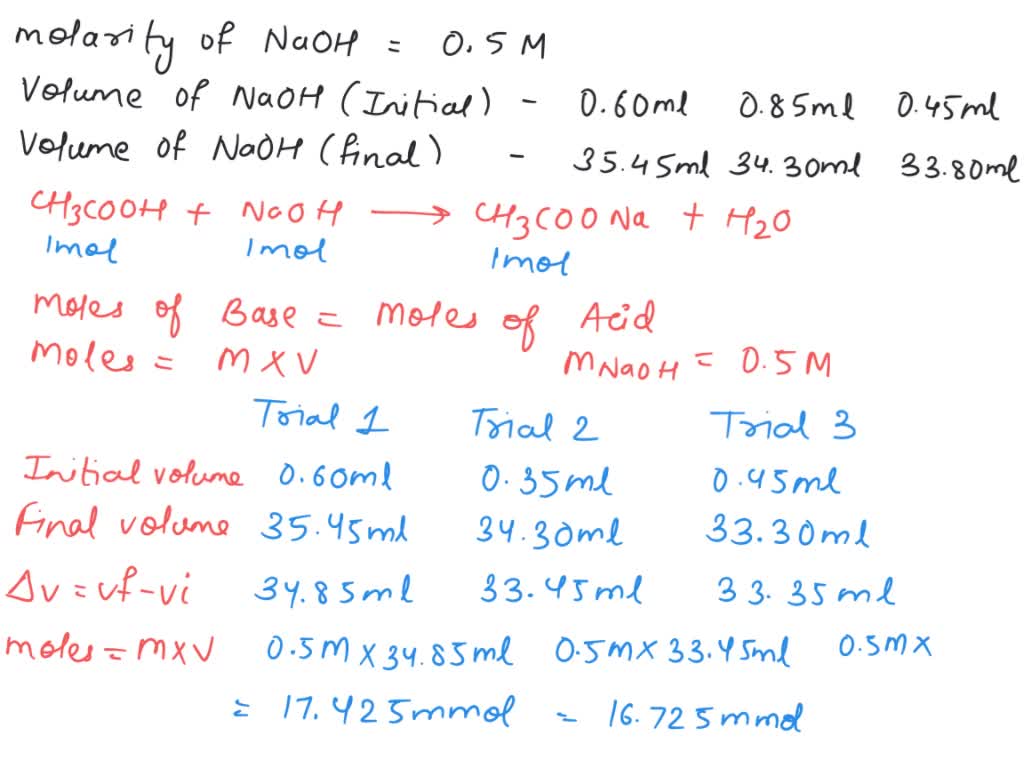 molarity of NaOH = 0.5 M
Volume of NaOH (Initial) - 0.60ml 0.85ml 0.45ml
Volume of NaOH (final) - 35.45ml 34.30ml 33.80ml
CH3COOH + NaOH → CH3COONa + H2O
1mol 1mol 1mol
Moles of Base = moles of Acid
Moles = M X V MNaOH = 0.5 M
Trial 1 Trial 2 Trial 3
Initial volume 0.60ml 0.35ml 0.45ml
final volume 35.45ml 34.30ml 33.30ml
Δv = vf-vi 34.85ml 33.45ml 33.35ml
moles = mxv 0.5M x 34.85ml 0.5mx 33.45ml 0.5mx
= 17.425mmol = 16.725mmol